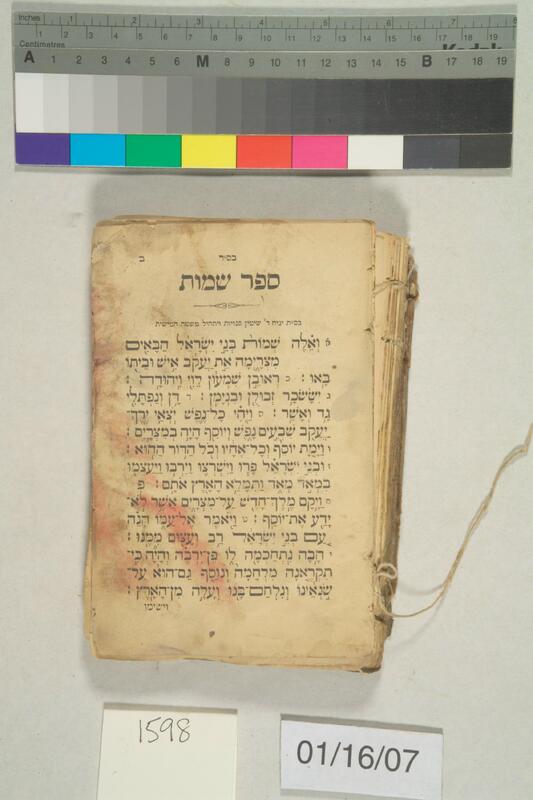 Inches 1 2 3 4 5 6 7 8
Centimetres 1 2 3 4 5 6 7 8 9 10 11 12 13 14 15 16 17 18 19
Kodak
A 1 2 3 4 5 6 M 8 9 10 11 12 13 14 15 B 17 18 19
בס״ד ב
ספר שמות
א וְאֵלֶּה שְׁמוֹת בְּנֵי יִשְׂרָאֵל הַבָּאִים
מִצְרָיְמָה אֵת יַעֲקֹב אִישׁ וּבֵיתוֹ
בָּאוּ׃ ב רְאוּבֵן שִׁמְעוֹן לֵוִי וִיהוּדָה׃
ג יִשָּׂשכָר זְבוּלֻן וּבִנְיָמִן׃ ד דָּן וְנַפְתָּלִי
גָּד וְאָשֵׁר׃ ה וַיְהִי כָּל־נֶפֶשׁ יֹצְאֵי יֶרֶךְ־
יַעֲקֹב שִׁבְעִים נָפֶשׁ וְיוֹסֵף הָיָה בְמִצְרָיִם׃
ו וַיָּמָת יוֹסֵף וְכָל־אֶחָיו וְכֹל הַדּוֹר הַהוּא׃
ז וּבְנֵי יִשְׂרָאֵל פָּרוּ וַיִּשְׁרְצוּ וַיִּרְבּוּ וַיַּעַצְמוּ
בִּמְאֹד מְאֹד וַתִּמָּלֵא הָאָרֶץ אֹתָם׃ פ
ח וַיָּקָם מֶלֶךְ־חָדָשׁ עַל־מִצְרָיִם אֲשֶׁר לֹא־
יָדַע אֶת־יוֹסֵף׃ ט וַיֹּאמֶר אֶל־עַמּוֹ הִנֵּה
עַם בְּנֵי יִשְׂרָאֵל רַב וְעָצוּם מִמֶּנּוּ׃
י הָבָה נִתְחַכְּמָה לוֹ פֶּן־יִרְבֶּה וְהָיָה כִּי־
תִקְרֶאנָה מִלְחָמָה וְנוֹסַף גַּם־הוּא עַל־
שֹׂנְאֵינוּ וְנִלְחַם־בָּנוּ וְעָלָה מִן־הָאָרֶץ׃
וישימו
1598
01/16/07